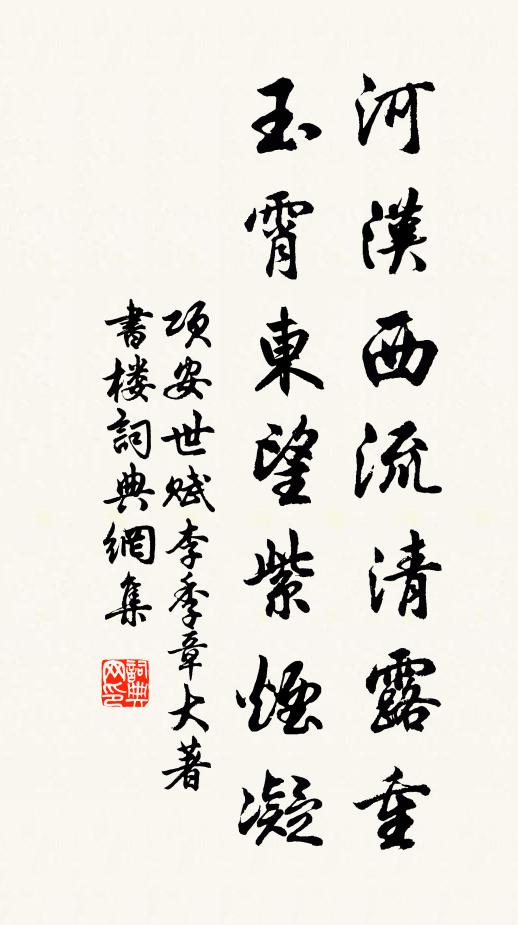 河漢西流清露重
玉霄東望紫煙凝
項安世賦李季章大著
書樓詞典網集
詞典网印